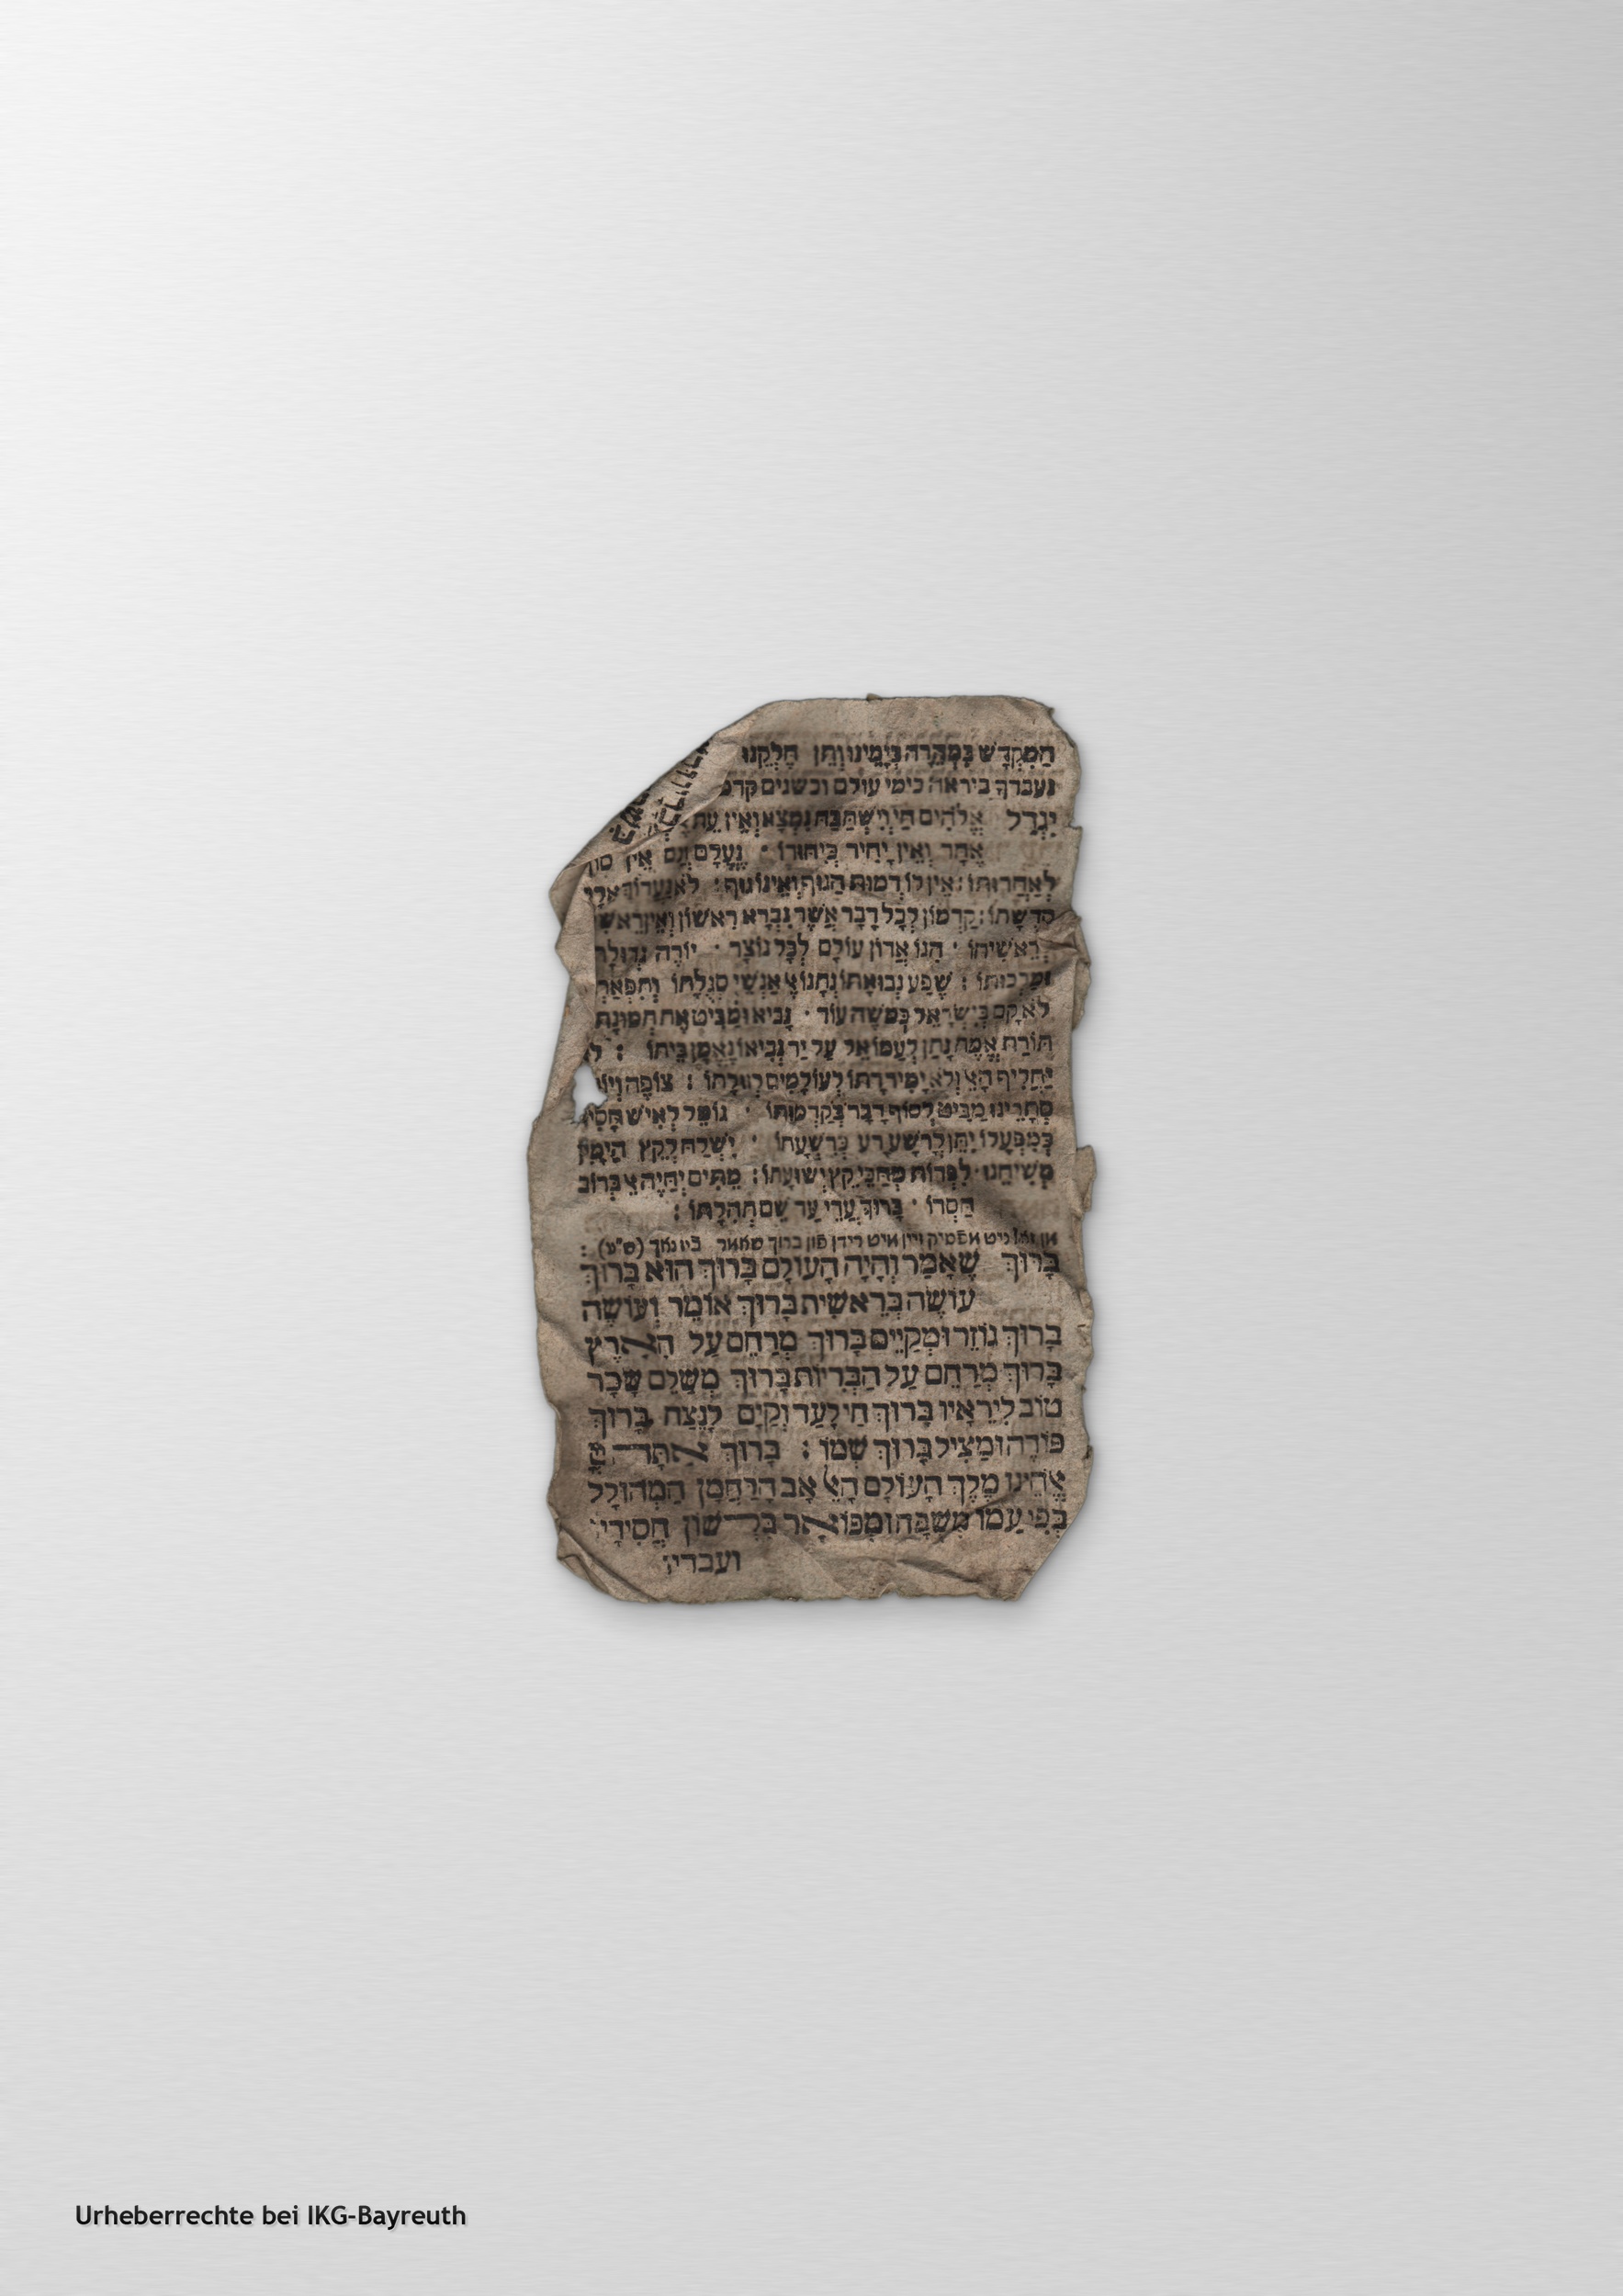 הַמִּקְדָּשׁ בִּמְהֵרָה בְּיָמֵינוּ וְתֵן חֶלְקֵנוּ
נעבדך ביראה כימי עולם וכשנים קדמ
יִגְדַל אֱלֹהִים חַי וְיִשְׁתַּבַּח נִמְצָא וְאֵין עֵת
אֶחָד וְאֵין יָחִיד כְּיִחוּדוֹ · נֶעֱלָם וְגַם אֵין סוֹף
לְאַחְדוּתוֹ : אֵין לוֹ דְמוּת הַגּוּף וְאֵינוֹ גוּף : לֹא נַעֲרוֹךְ אֵלָיו
קְדֻשָּׁתוֹ : קַדְמוֹן לְכָל דָּבָר אֲשֶׁר נִבְרָא רִאשׁוֹן וְאֵין רֵאשִׁ
לְרֵאשִׁיתוֹ · הִנּוֹ אֲדוֹן עוֹלָם לְכָל נוֹצָר · יוֹרֶה גְדוּלָּת
וּמַלְכוּתוֹ : שֶׁפַע נְבוּאָתוֹ נְתָנוֹ אֶל אַנְשֵׁי סְגֻלָּתוֹ וְתִפְאַרְ
לֹא קָם בְּיִשְׂרָאֵל כְּמֹשֶׁה עוֹד · נָבִיא וּמַבִּיט אֶת תְּמוּנָת
תּוֹרַת אֱמֶת נָתַן לְעַמּוֹ אֵל עַל יַד נְבִיאוֹ נֶאֱמַן בֵּיתוֹ : לֹא
יַחֲלִיף הָאֵל וְלֹא יָמִיר דָּתוֹ לְעוֹלָמִים לְזוּלָתוֹ : צוֹפֶה וְיוֹ
סְתָרֵינוּ מַבִּיט לְסוֹף דָּבָר בְּקַדְמוּתוֹ · גּוֹמֵל לְאִישׁ חָסִיד
כְּמִפְעָלוֹ יִתֵּן לְרָשָׁע רָע כְּרִשְׁעָתוֹ · יִשְׁלַח לְקֵץ הַיָּמִין
מְשִׁיחֵנוּ לִפְדּוֹת מְחַכֵּי קֵץ יְשׁוּעָתוֹ : מֵתִים יְחַיֶּה אֵל בְּרוֹב
חַסְדּוֹ · בָּרוּךְ עֲדֵי עַד שֵׁם תְּהִלָּתוֹ :
ניט מפסיק זיין מיט רידן פון ברוך שאמר
בָּרוּךְ שֶׁאָמַר וְהָיָה הָעוֹלָם בָּרוּךְ הוּא בָּרוּךְ
עוֹשֶׂה בְּרֵאשִׁית בָּרוּךְ אוֹמֵר וְעוֹשֶׂה
בָּרוּךְ גּוֹזֵר וּמְקַיֵּים בָּרוּךְ מְרַחֵם עַל הָאָרֶץ
בָּרוּךְ מְרַחֵם עַל הַבְּרִיּוֹת בָּרוּךְ מְשַׁלֵּם שָׂכָר
טוֹב לִירֵאָיו בָּרוּךְ חַי לָעַד וְקַיָּם לָנֶצַח בָּרוּךְ
פּוֹדֶה וּמַצִּיל בָּרוּךְ שְׁמוֹ : בָּרוּךְ אַתָּה
אֱלֹהֵינוּ מֶלֶךְ הָעוֹלָם הָאֵל אָב הָרַחֲמָן הַמְהוּלָל
בְּפִי עַמּוֹ מְשֻׁבָּח וּמְפוֹאָר בִּלְשׁוֹן חֲסִידָיו
ועבדיו
Urheberrechte bei IKG-Bayreuth